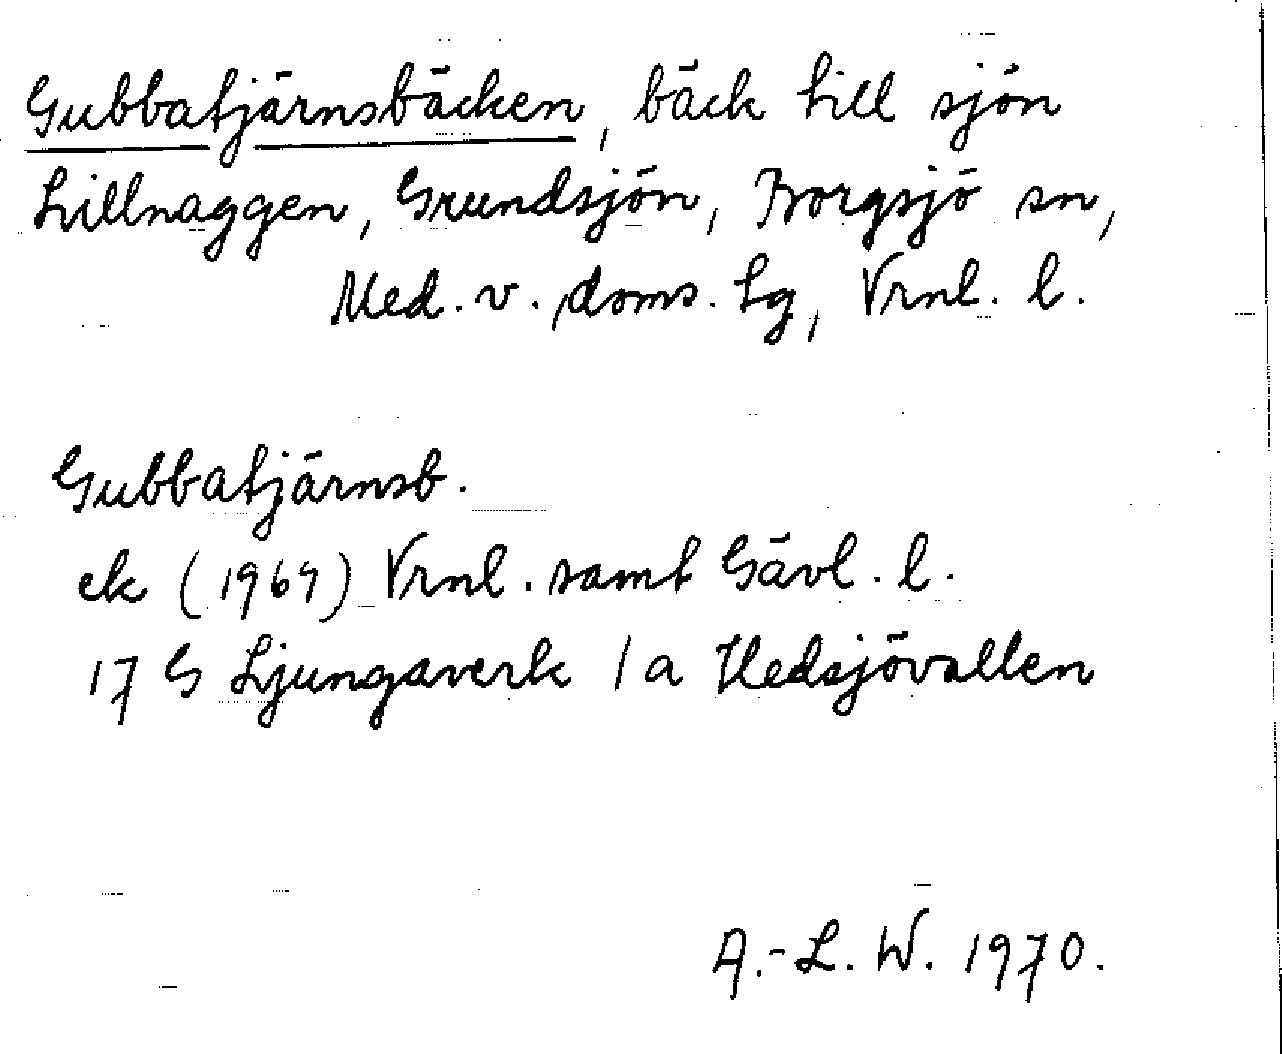 Gubbatjärnsbäcken, bäck till sjön
Lillnaggen, Grundsjön, Borgsjö sn,
Med. v. doms. tg, Vrnl. l.
Gubbatjärnsb.
ek (1967) Vrnl. samt Gävl. l.
17 G Ljungaverk 1 a Hedsjövallen
A.-L. W. 1970.